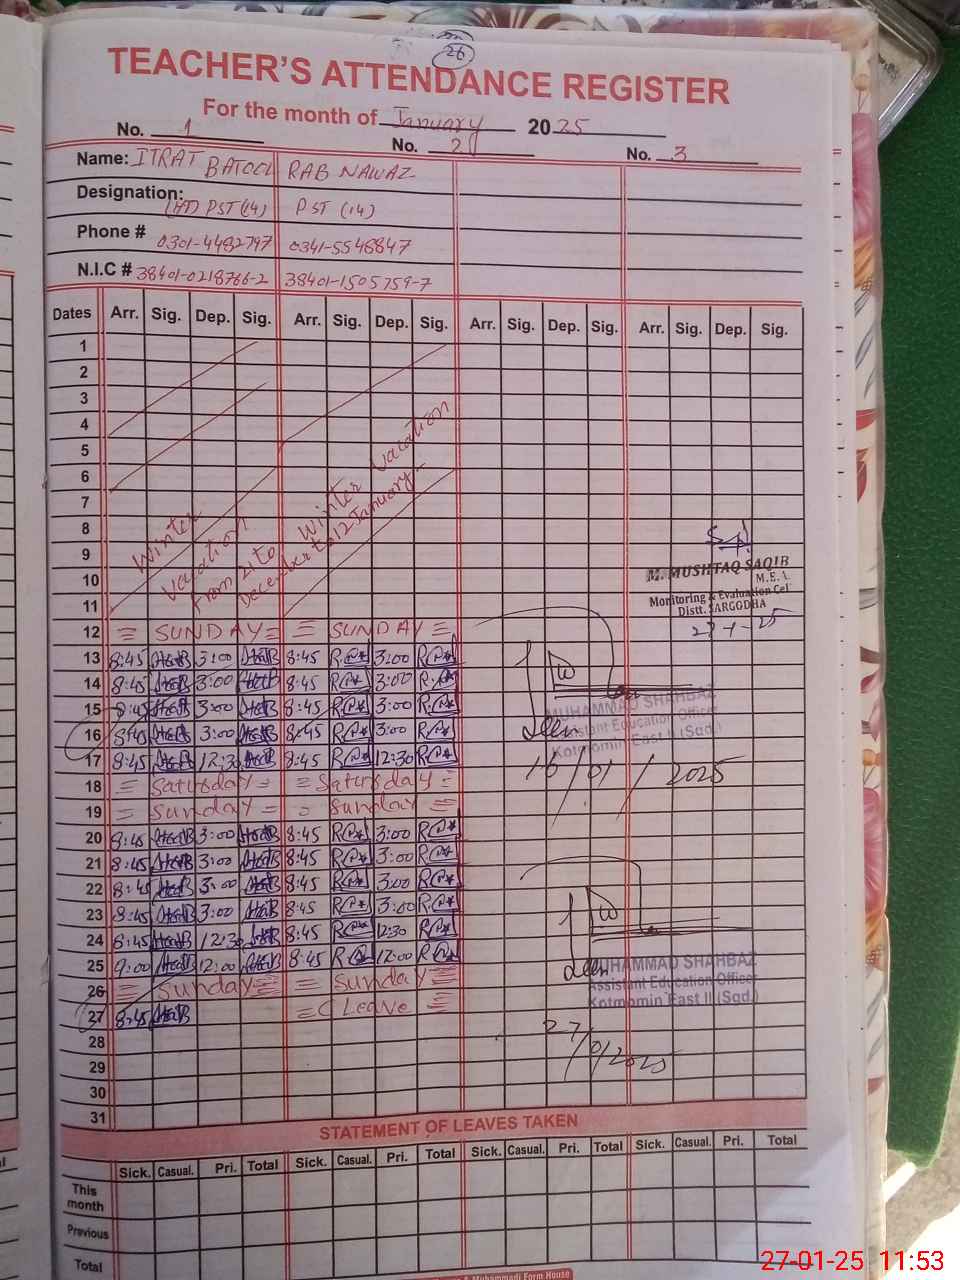 26
TEACHER'S ATTENDANCE REGISTER
For the month of January 2025
No. 1 No. 2 No. 3
Name: ITRAT BATOOL RAB NAWAZ
Designation: PST (14) PST (14)
Phone # 0301-4482797 0341-5548847
N.I.C # 38401-0218766-2 38401-1505759-7
Dates Arr. Sig. Dep. Sig. Arr. Sig. Dep. Sig. Arr. Sig. Dep. Sig. Arr. Sig. Dep. Sig.
1
2
3
4
5
6
7
8
9
10
11
Winter Vacation From 21 to December to 12 January
Winter Vacation
M. MUSHTAQ SAQIB
M.E.A
Monitoring & Evaluation Cell
Distt. SARGODHA
27-1-25
12 = SUNDAY = = SUNDAY =
13 8:45 3:00 8:45 3:00
14 8:45 3:00 8:45 3:00
15 8:45 3:00 8:45 3:00
16 8:45 3:00 8:45 3:00
17 8:45 12:30 8:45 12:30
MUHAMMAD SHAHBAZ
Assistant Education Officer
Kotmomin East II (Sgd.)
16/01/2025
18 = Saturday = = Saturday =
19 = Sunday = = Sunday =
20 8:45 3:00 8:45 3:00
21 8:45 3:00 8:45 3:00
22 8:45 3:00 8:45 3:00
23 8:45 3:00 8:45 3:00
24 8:45 12:30 8:45 12:30
25 9:00 12:00 8:45 12:00
26 = Sunday = = Sunday =
27 8:45 = C Leave =
MUHAMMAD SHAHBAZ
Assistant Education Officer
Kotmomin East II (Sgd.)
27/01/2025
28
29
30
31
STATEMENT OF LEAVES TAKEN
Sick. Casual. Pri. Total Sick. Casual. Pri. Total Sick. Casual. Pri. Total Sick. Casual. Pri. Total
This month
Previous
Total
& Muhammadi Form House
27-01-25 11:53